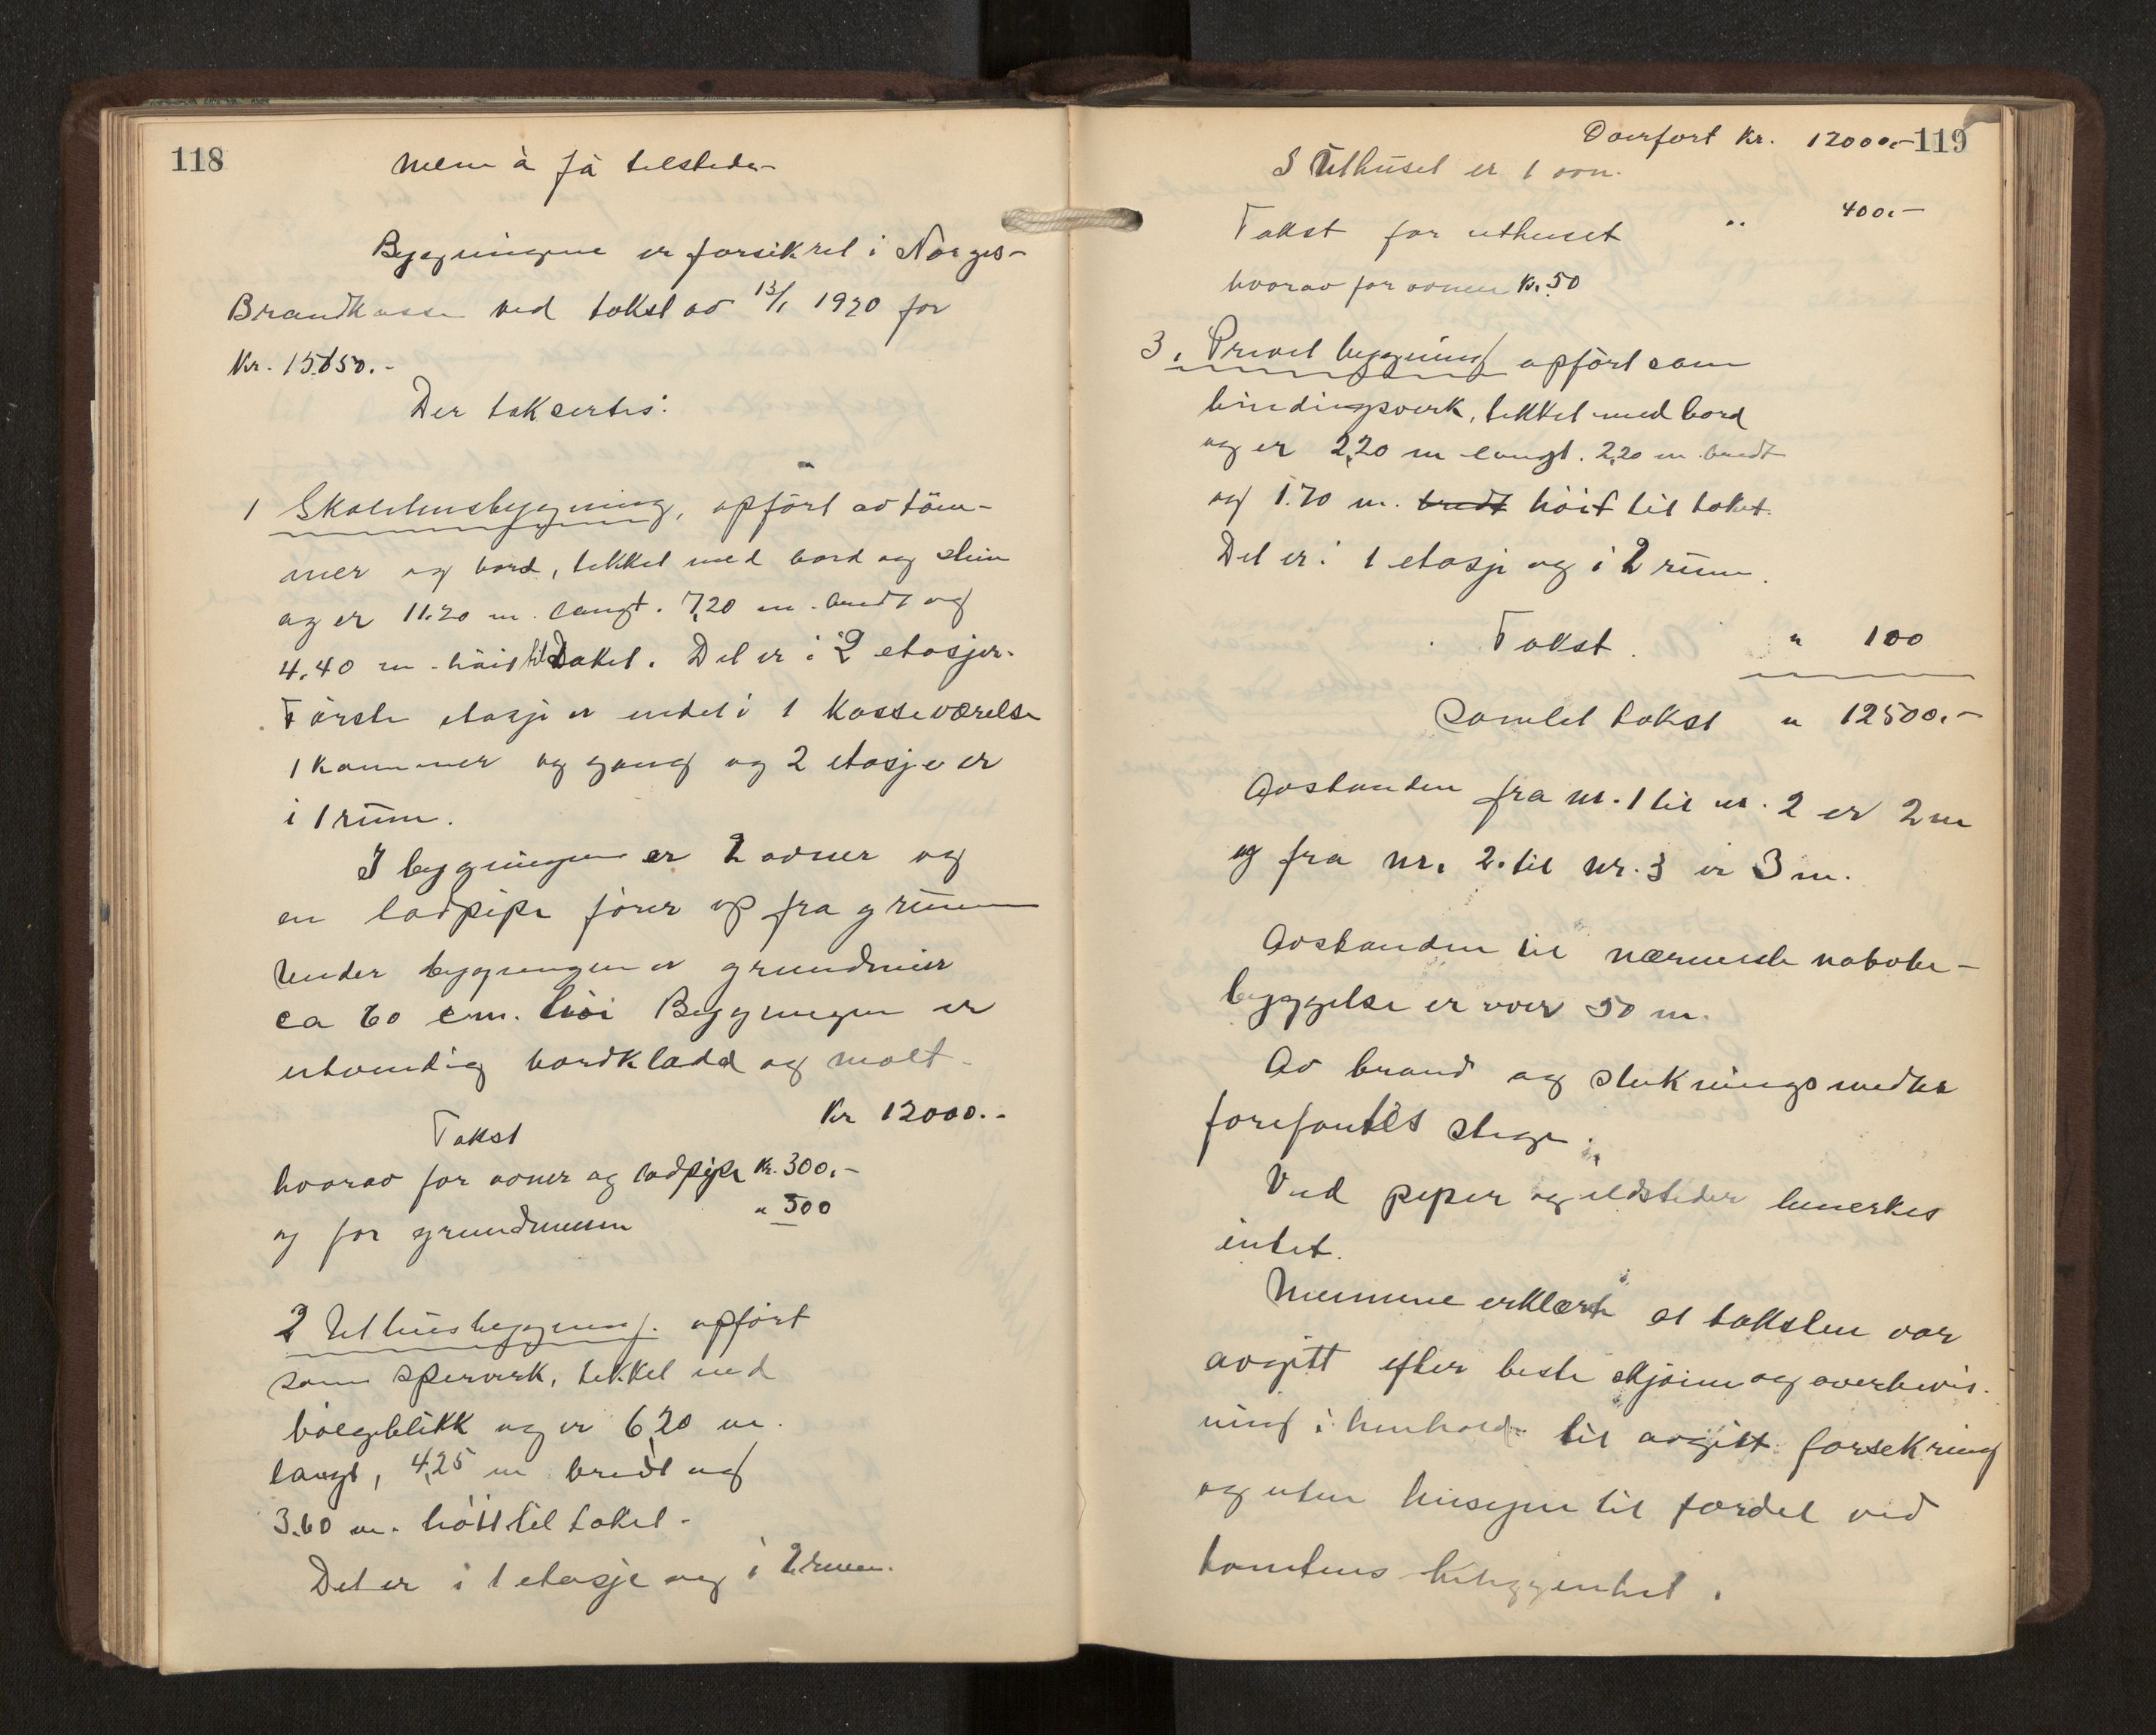 118
nem å få tilstede-
Bygningene er forsikret i Norges-
Brandkasse ved takst av 13/1 1920 for
Kr. 15650.-
Der taksertes:
1 Skolehusbygning, opført av töm-
mer og bord, tekket med bord og sten
og er 11.20 m. langt. 7,20 m. bredt og
4.40 m. höit til taket. Det er i 2 etasjer.
Förste etasje er indel i 1 Kasseværelse
1 kammer og gang og 2 etasje er
i 1 rüm.
I bygningen er 2 ovner og
en ladpipe förer op fra grünn
Under bygningen er grundmür
ca 60 cm. höi Bygningen er
utvendig bordkladd og malt-
Takst Kr 12000.-
hvorav for ovner og ladpipe Kr. 300.-
og for grundmuren " 500
2 Uthüsbygning. opfört
som sperverk, tekket med
bölgeblikk og er 6,20 m.
langt, 4,25 m bredt og
3.60 m. höit til taket-
Det er i 1 etasje og i 2 rum.
119
Overfört Kr. 12000.-
I Uthüset er 1 ovn.
Takst for uthuset " 400.-
hvorav for ovnen Kr. 50
3. Privet bygning opfört som
bindingsverk, tekket med bord
og er 2,20 m langt. 2,20 m. bredt
og 1.70 m. bredt höit til taket.
Det er i 1 etasje og i 2 rüm.
Takst. " 100
Samlet takst " 12500.-
Avstanden fra nr. 1 til nr. 2 er 2 m
og fra nr. 2. til nr. 3 er 3 m.
Avstanden til nærmeste nabobe-
byggelse er over 50 m.
Av brand og slukningsmedler
forefantes stige.
Ved piper og ildsteder bemerkes
intet.
Mennene erklærte at taksten var
avgitt efter beste skjönn og overbevis-
ning i henhold til avgitt forsekring
og uten hensyn til fordel ved
tomtens beliggenhet.